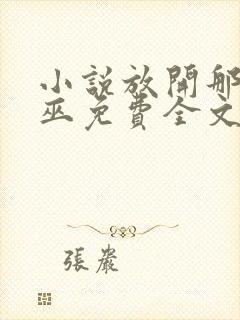 小說放開那
巫免費全文
張嚴